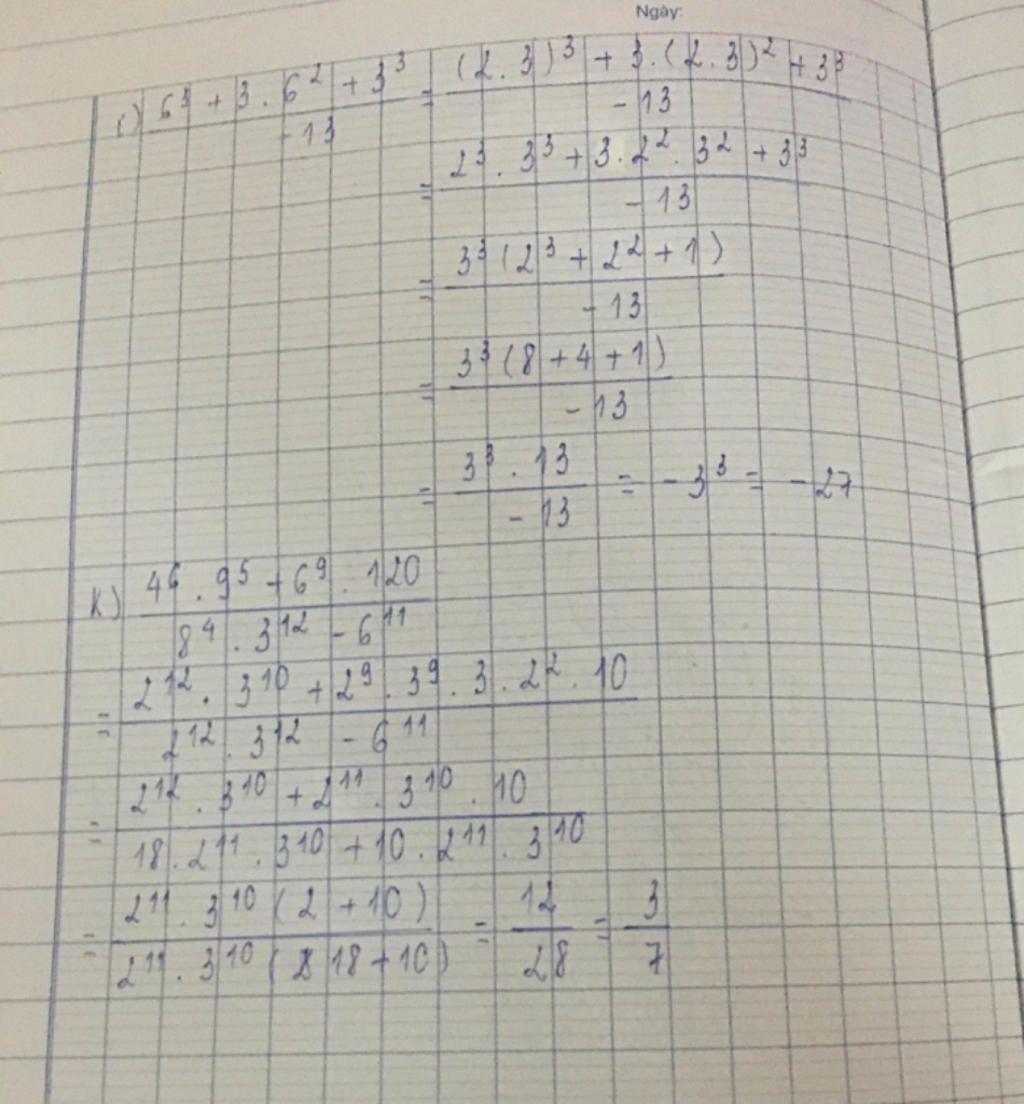 Ngày:
i) (6³ + 3 . 6² + 3³)/(-13) = ((2 . 3)³ + 3 . (2 . 3)² + 3³)/(-13)
= (2³ . 3³ + 3 . 2² . 3² + 3³)/(-13)
= (3³ (2³ + 2² + 1))/(-13)
= (3³ (8 + 4 + 1))/(-13)
= (3³ . 13)/(-13) = -3³ = -27
K) (4⁶ . 9⁵ + 6⁹ . 120)/(8⁴ . 3¹² - 6¹¹)
= (2¹² . 3¹⁰ + 2⁹ . 3⁹ . 3 . 2² . 10)/(2¹² . 3¹² - 6¹¹)
= (2¹² . 3¹⁰ + 2¹¹ . 3¹⁰ . 10)/(18 . 2¹¹ . 3¹⁰ + 10 . 2¹¹ . 3¹⁰)
= (2¹¹ . 3¹⁰ (2 + 10))/(2¹¹ . 3¹⁰ (18 + 10)) = 12/28 = 3/7